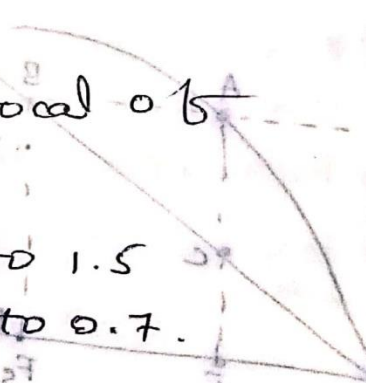 A
ocal of
1.5
to 0.7.